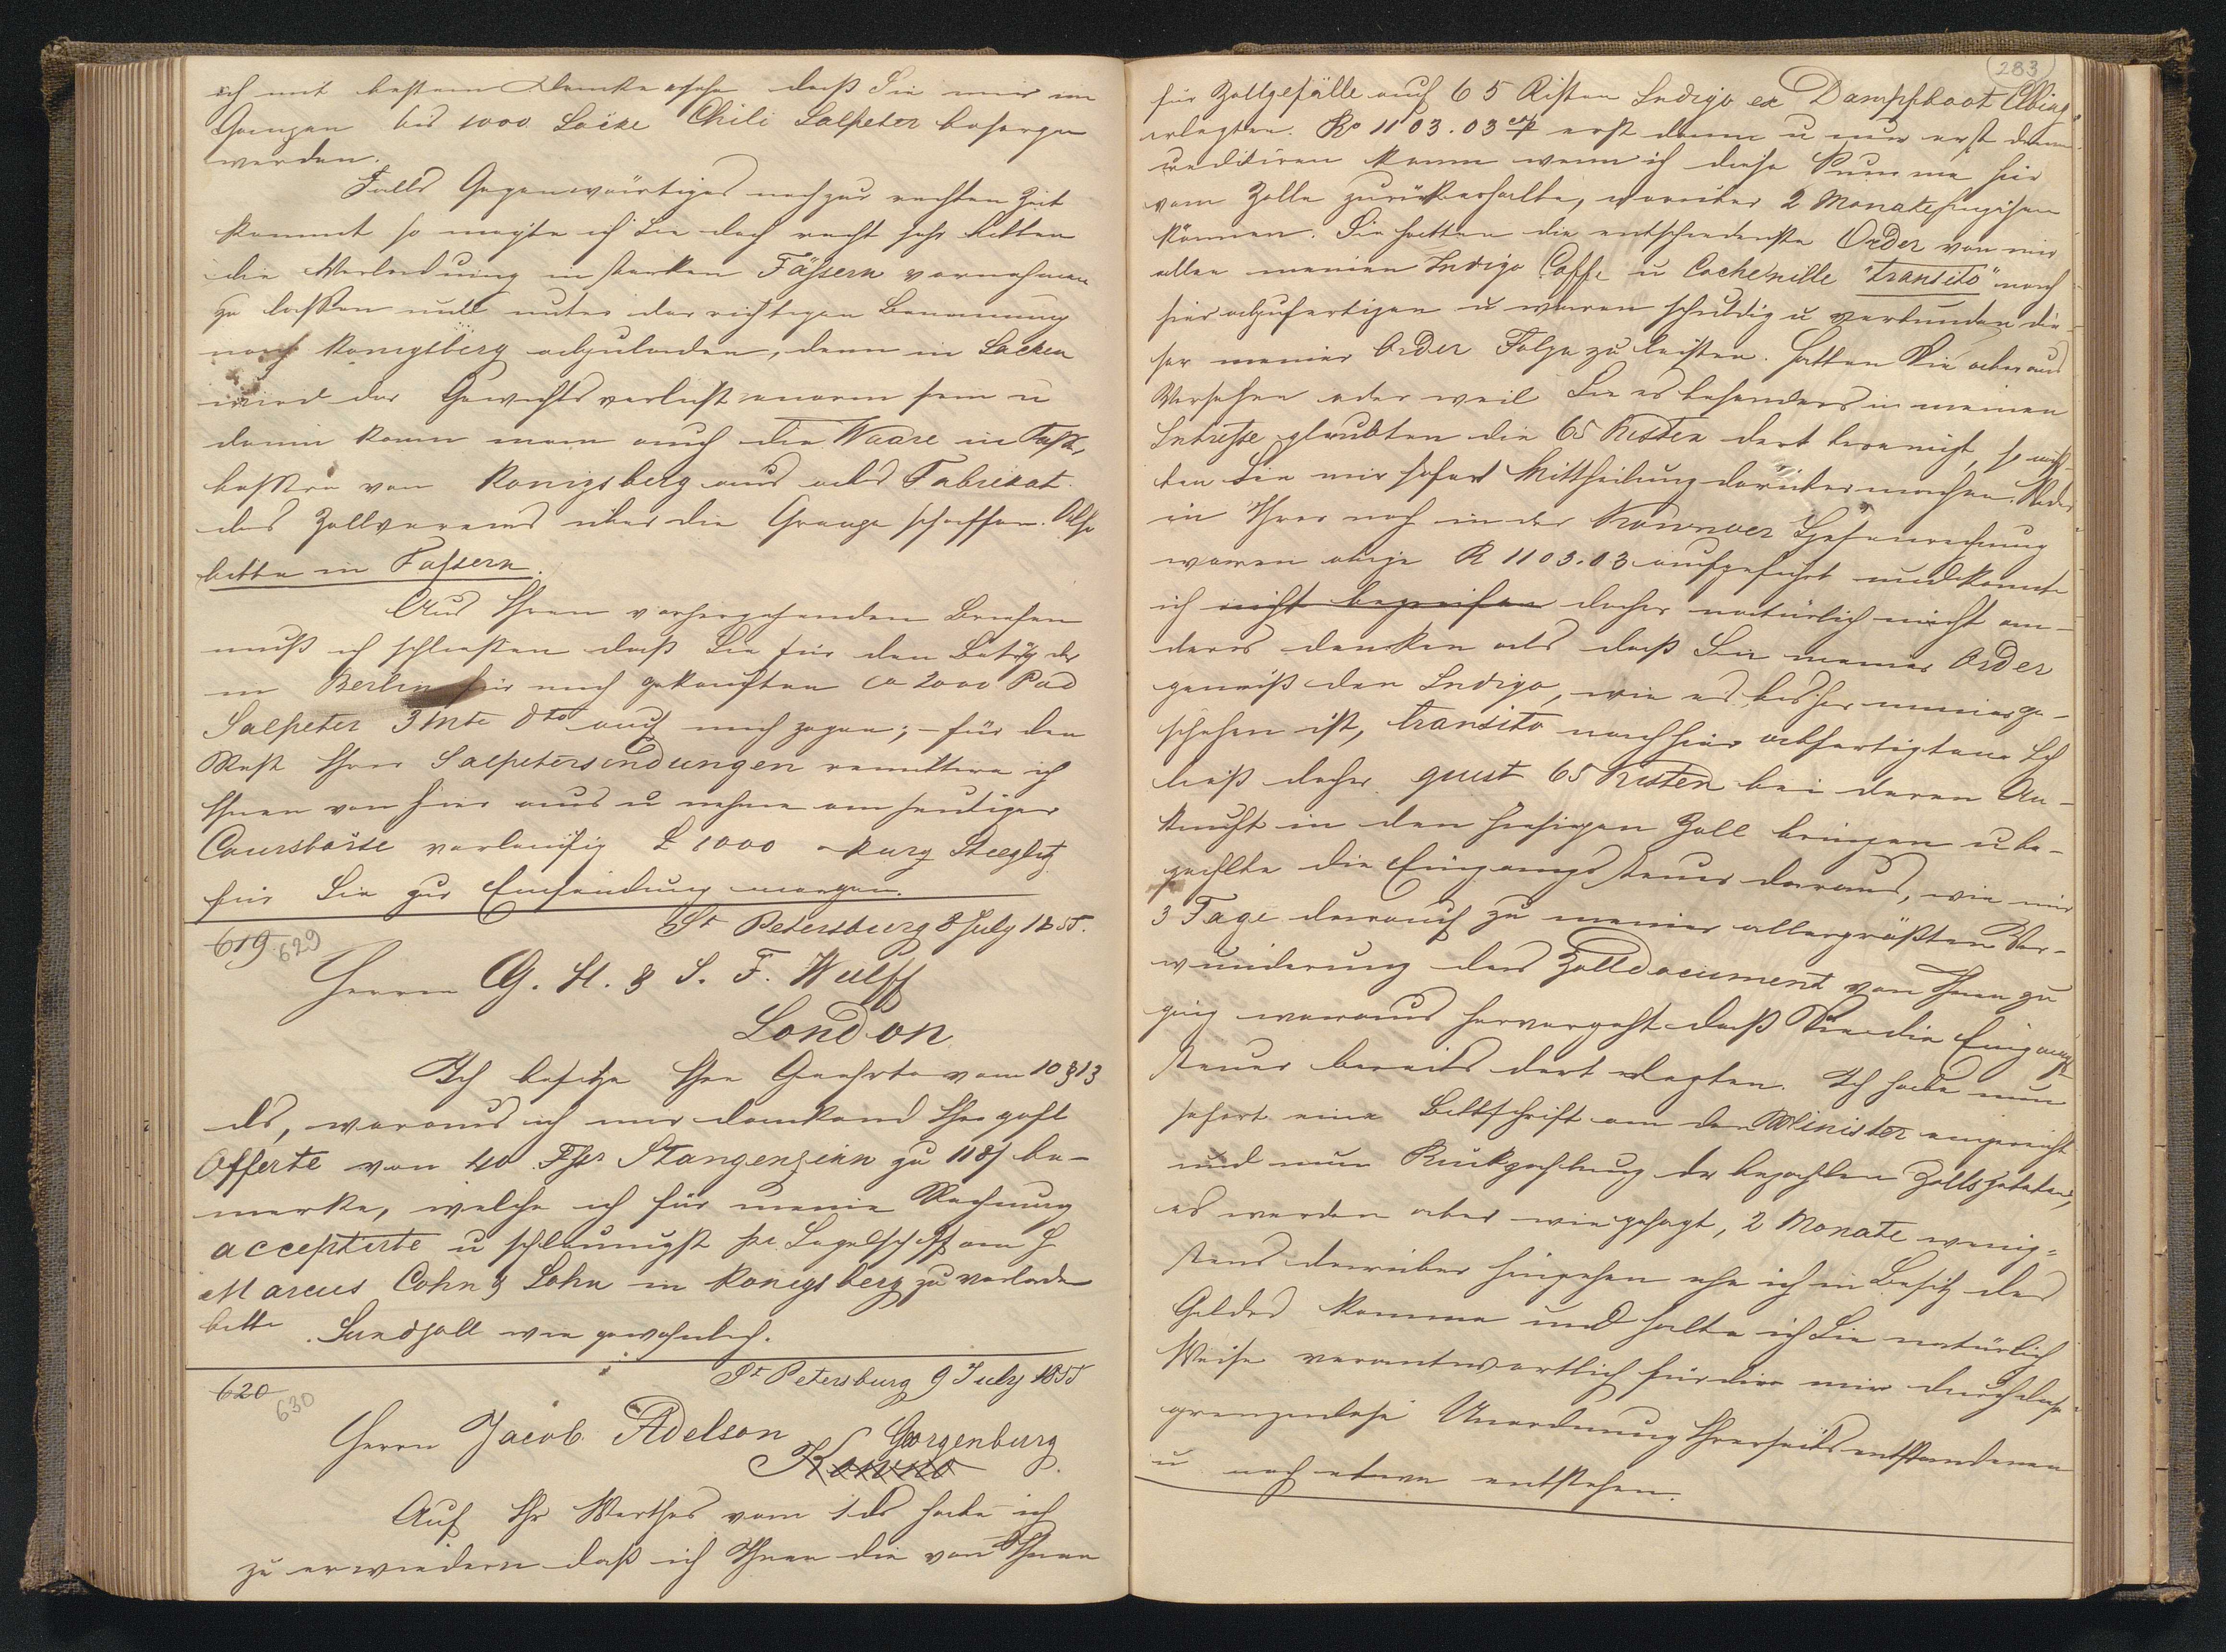 ich mit bestem Danke ersehe daß Sie mir im
Ganzen bis 1000 Säcke Chili Salpeter besorgen
werden.
Falls Gegenwärtiges noch zur rechten Zeit
kommt so mögte ich Sie doch recht sehr bitten
die Verladung in starken Fässern vornehmen
zu lassen und unter der richtigen Benennung
nach Konigsberg abzuladen, denn in Säcken
wird der Gewichtsverlust enorm sein u
dann kann man auch die Waare in
besser von Konigsberg aus als Fabrikat
des Zollvereins über die Grenze schaffen. Also
bitte in Fassern.
Aus Ihren vorhergehenden Briefen
muß ich schliessen daß Sie für den Betrag der
in Berlin für mich gekauften Ca 2000 Pud
Salpeter 3 Mte dto auf mich zogen; – für den
Rest Ihrer Salpetersendungen remittire ich
Ihnen von hier aus u nehme am heutigen
Coursbörse vorläufig £ 1000 – kurz Stieglitz
für Sie zur Einsendung morgen.
619 629
St Petersburg 8 July 1855.
Herren G. H. & S. F. Wulff
London
Ich besitze Ihre Geehrte vom 10 & 13
ds, woraus ich mir dankend Ihre gefl
Offerte von 40 Fßr Stangenzinn zu 118/ be-
merke, welche ich für meine Rechnung
acceptirte u schleunigst per Segelschiff an H
Marcus Cohn & Sohn in Konigsberg zu verladen
bitte. Sundzoll wie gewöhnlich.
620 630
St Petersburg 9 July 1855
Herrn Jacob Adelson Georgenburg
Kowno
Auf Ihr Werthes vom 1 ds habe ich
zu erwiedern daß ich Ihnen die von Ihnen
283
für Zollgefälle auf 65 Kisten Indigo ex Dampfboot Elbing
erlegten. Ro 1103.03 erst dann u nur erst dann
creditiren kann wenn ich diese Summe hier
vom Zolle zurückerhalte, worüber 2 Monate hingehen
können. Sie hatten die entschiedenste Order von mir
allen meinen Indigo Caffe u Cochenille "transito" nach
hier abzufertigen u waren schuldig u verbunden die-
ser meiner Order Folge zu leisten. Hatten Sie aber aus
Versehen oder weil Sie es besonders in meinem
Intresse glaubten die 65 Kisten dort bereinigt, so muß-
ten Sie mir sofort Mittheilung darüber machen. Weder
in Ihrer noch in der Kownoer Spesenrechnung
waren obige R 1103.03 aufgeführt und konnte
ich nicht begreifen daher natürlich nicht an-
deres denken als daß Sie meiner Order
gemäß den Indigo, wie es bisher immer ge-
schehen ist, transito nach hier abfertigten. Ich
ließ daher quest 65 Kisten bei deren An-
kunft in den hiesigen Zoll bringen u be-
zahlte die Eingangssteuer daraus, wie mir
3 Tage darauf zu meiner allergrößten Ver-
wunderung das Zolldocument von Ihnen zu
ging woraus hervorgeht daß Sie die Eingangs-
steuer bereits dort erlegten. Ich habe nun
sofort eine Bittschrift an den Minister eingereicht
und um Rückzahlung des bezahlten Zolls gebeten,
es werden aber wie gesagt, 2 Monate wenig-
stens darüber hingehen ehe ich in Besitz des
Geldes komme und halte ich Sie natürlich
Weise verantwortlich für die mir durch diese
grenzenlose Unordnung Ihrerseits entstandenen
u noch etwa entstehen.